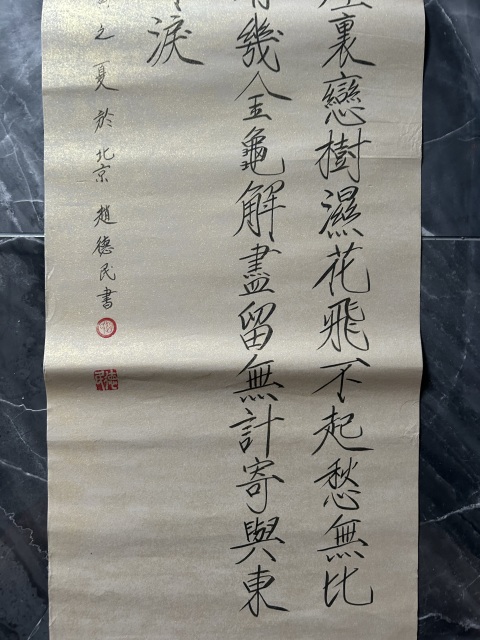 裏戀樹濕花飛不起愁無比
幾金龜解盡留無計寄與東
淚
之夏於北京 趙德民書